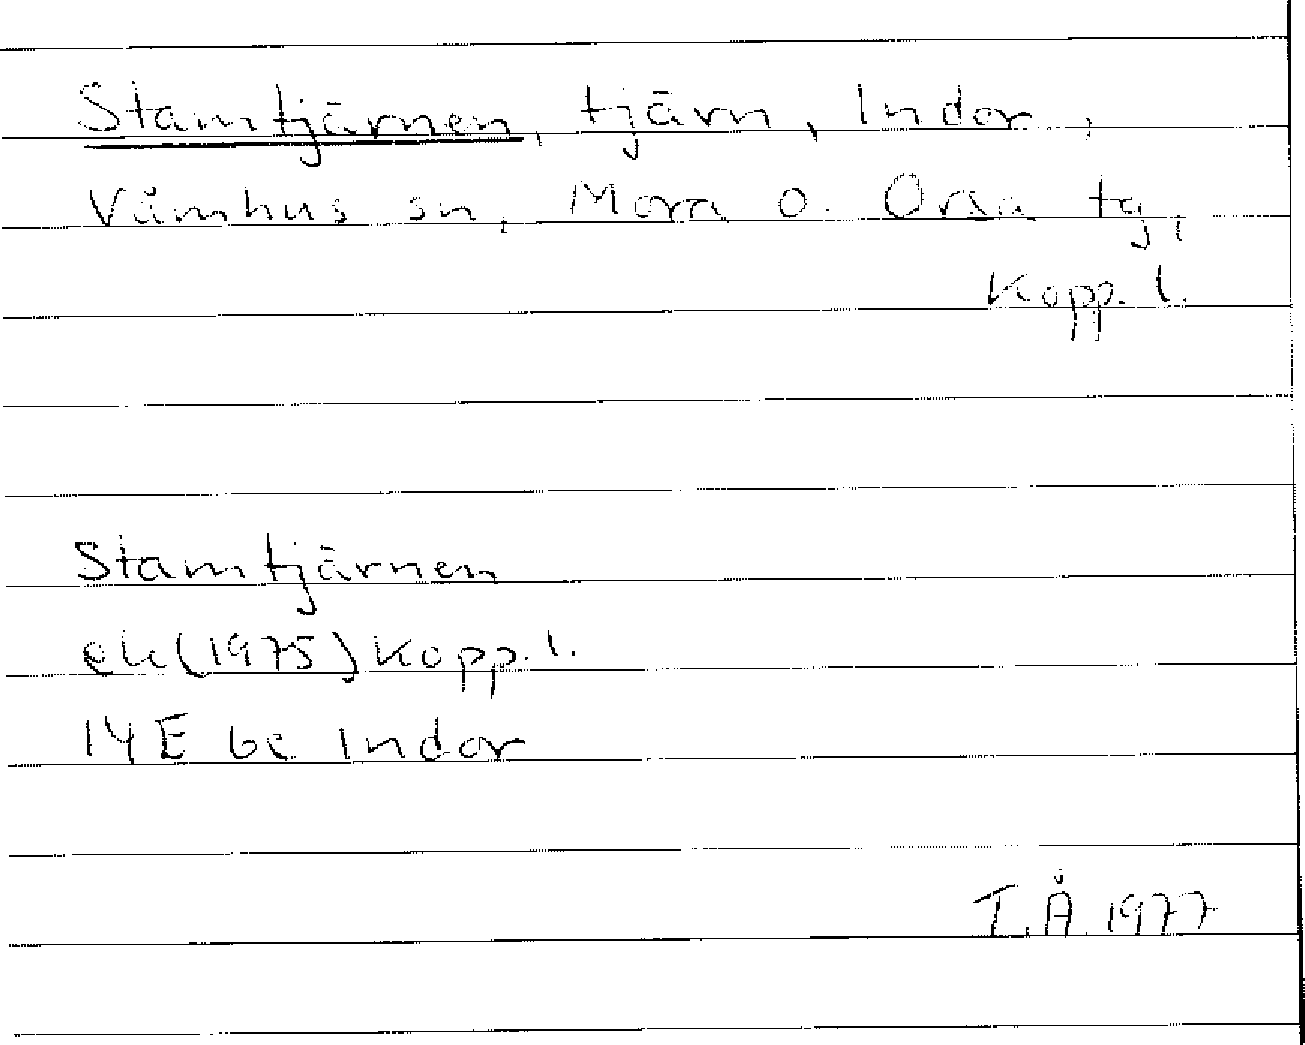 Stamtjärnen, tjärn, Indor,
Våmhus sn, Mora o. Orsa tg,
Kopp. l.
Stamtjärnen
ek (1975) Kopp. l.
14 E 6c Indor
I.Å. 1977